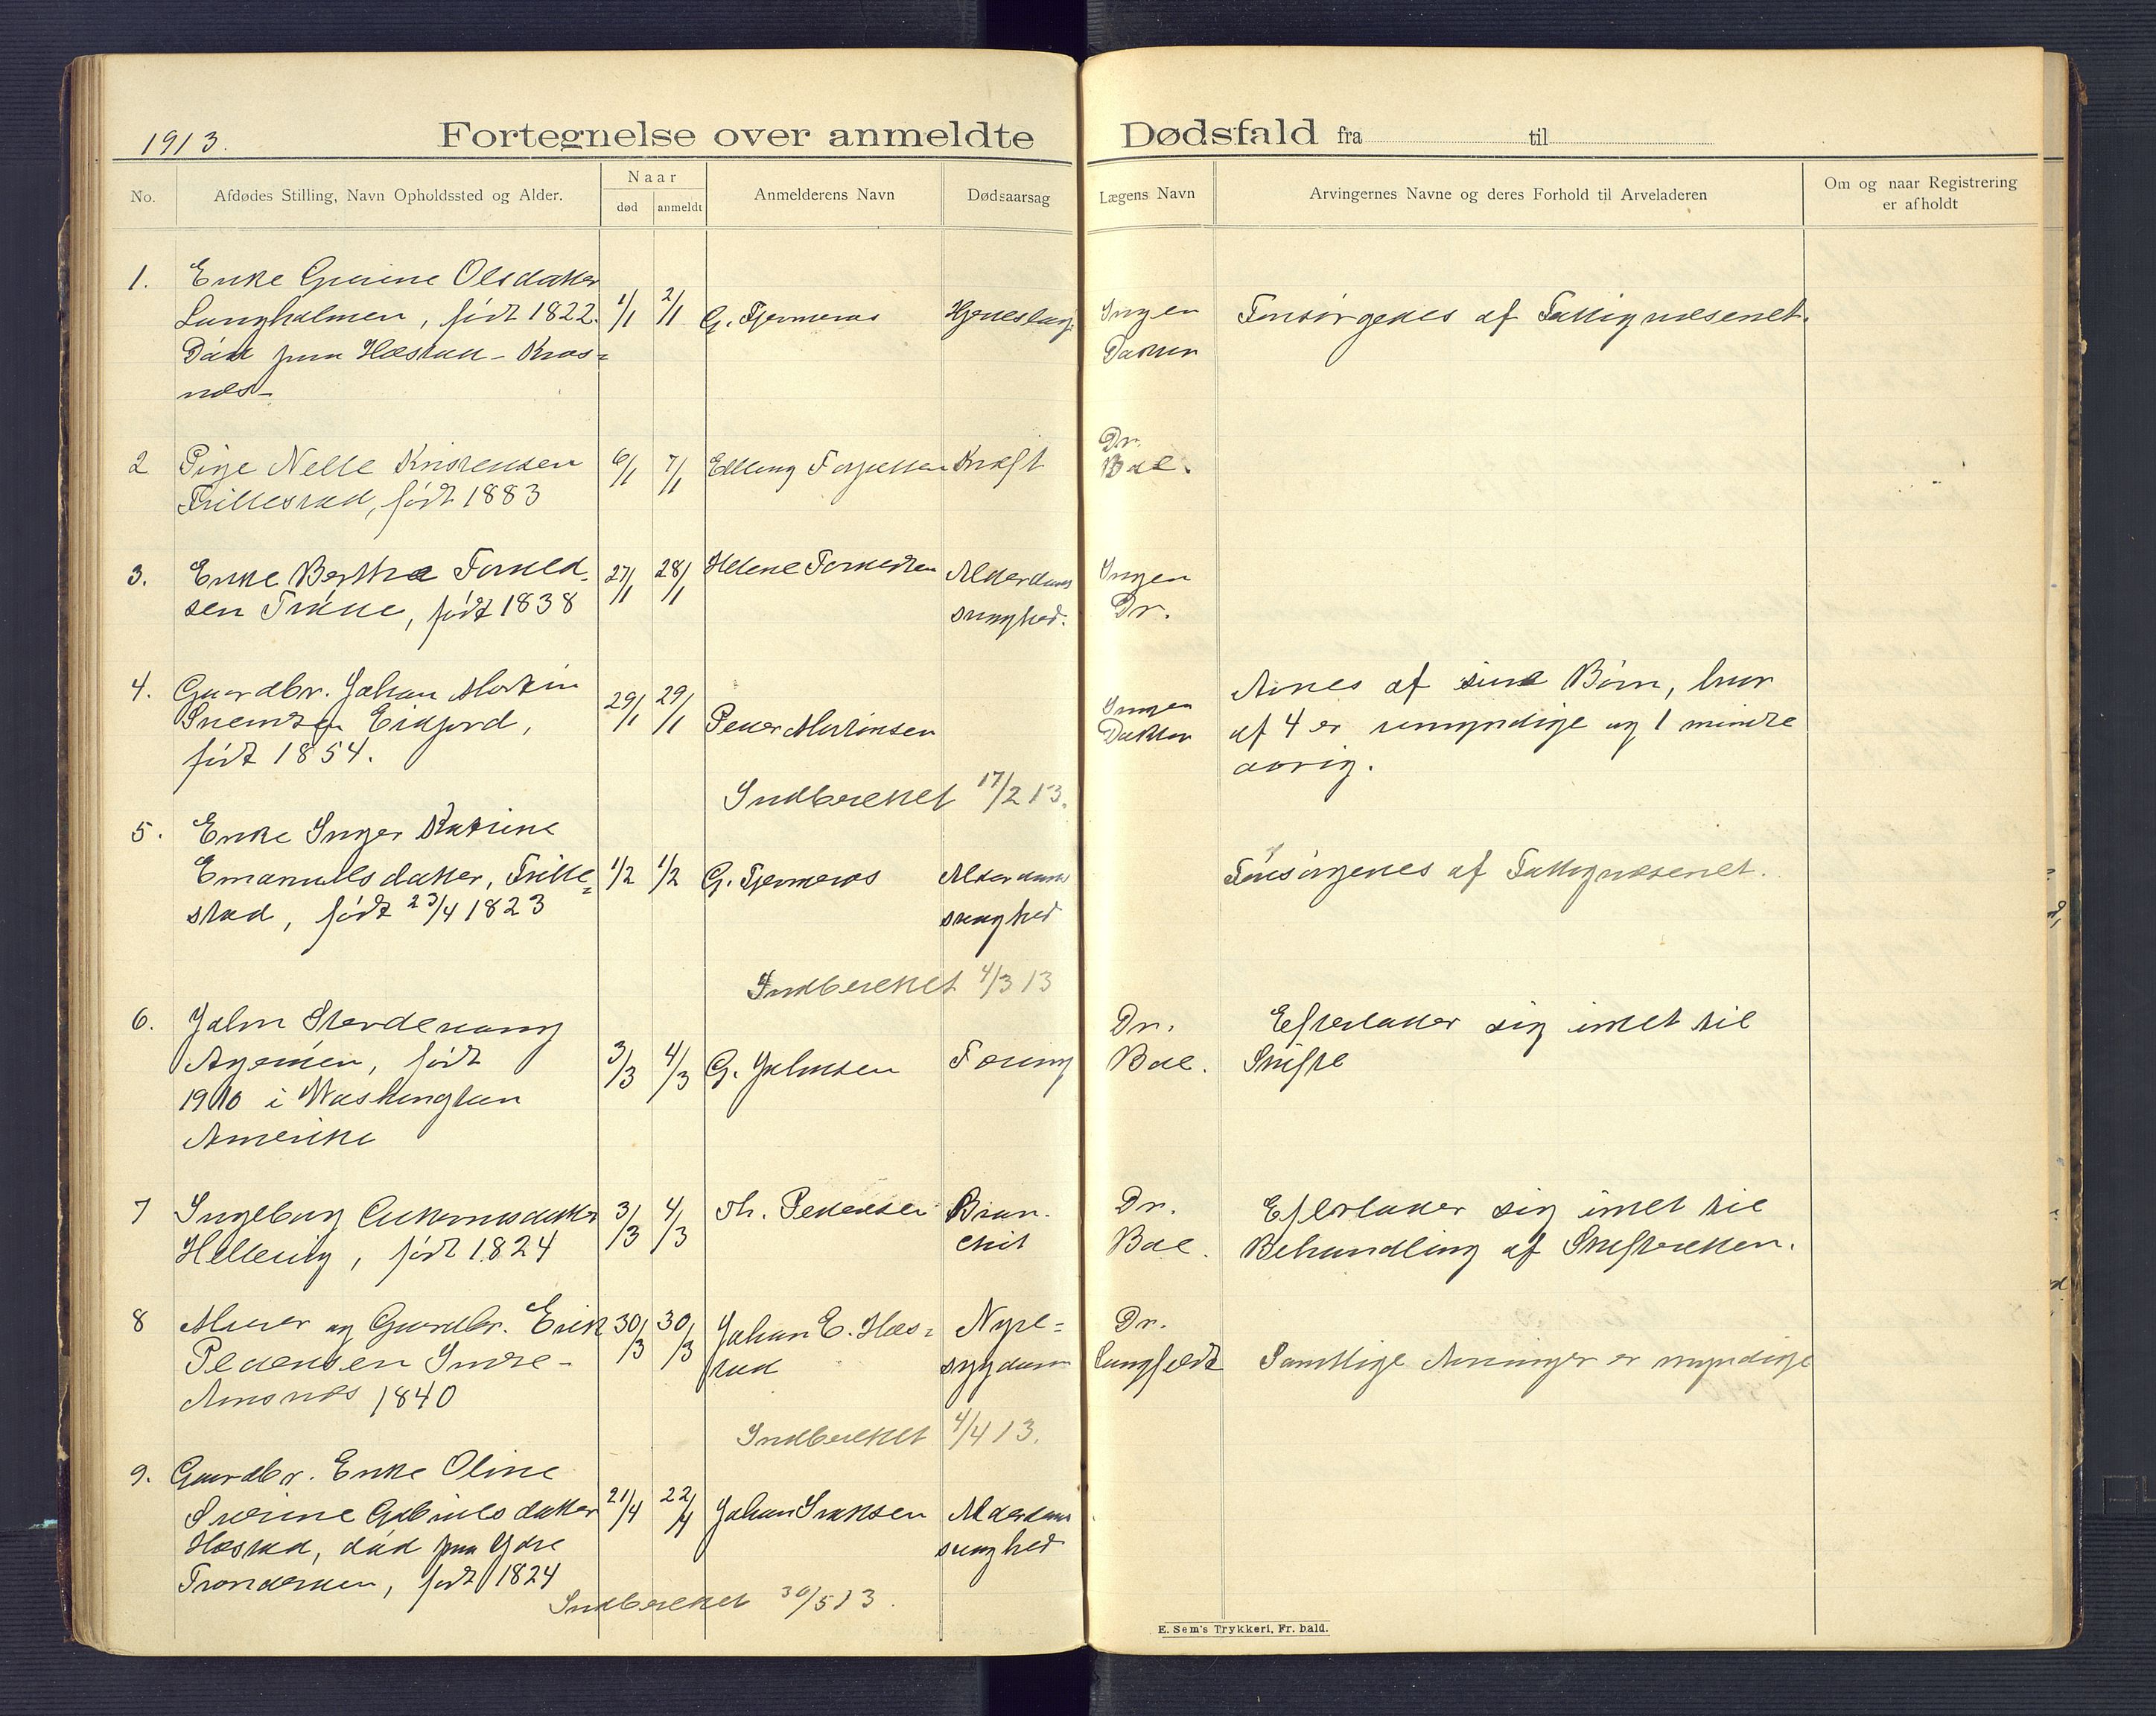 1913.
Fortegnelse over anmeldte Dødsfald fra til
No.
Afdødes Stilling, Navn Opholdssted og Alder.
Naar
død
anmeldt
Anmelderens Navn
Dødsaarsag
Lægens Navn
Arvingernes Navne og deres Forhold til Arveladeren
Om og naar Registrering
er afholdt
1.
Enke Gurine Olsdatter
Langholmen, født 1822.
Død paa Hæstad-
næs
1/1
2/1
G.
Ingen
Doktor
Forsørgedes af Fattigvæsenet.
2
Pige Nelle Kristensen
Trillestad, født 1883
6/1
7/1
Kræft
Dr.
Boe.
3.
Enke Berthe Torkild-
sen født 1838
27/1
28/1
Helene
Alderdoms
svaghed.
Ingen
Dr.
4.
Gaardbr. Johan Martin
Eikjord,
født 1854.
29/1
29/1
Peter Martinsen
Ingen
Doktor
Arves af sine Børn, hvor
af 4 er umyndige og 1 mindre
aarig.
Indberettet 17/2 13.
5.
Enke Inger Katrine
Emanuelsdatter, Trille=
stad, født 23/4 1823
1/2
1/2
G.
Alderdoms
svaghed
Forsørgedes af Fattigvæsenet.
Indberettet 4/3 13
6.
født
1910 i Washington
Amerika
3/3
4/3
G. Johnsen
Tæring
Dr.
Boe.
Efterlader sig intet til
Skifte
7
Ingeborg
født 1824
3/3
4/3
Th. Pedersen
Bron-
chit
Dr.
Boe.
Efterlader sig intet til
Behandling af Skifteretten.
8
og Gaardbr. Erik
Pedersen Indre-
Arnsnæs 1840
30/3
30/3
Johan E. Hæs=
tad
Nyre=
sygdom
Dr.
Langfeldt
Samtlige Arvinger er myndige
Indberettet 4/4 13.
9.
Gaardbr. Enke Oline
Sverine Gabrielsdatter
Hæstad, død paa Ydre
født 1824
21/4
22/4
Johan
Alderdoms
svaghed
Indberettet 30/5 13.
E. Sem's Trykkeri, Fr. hald.